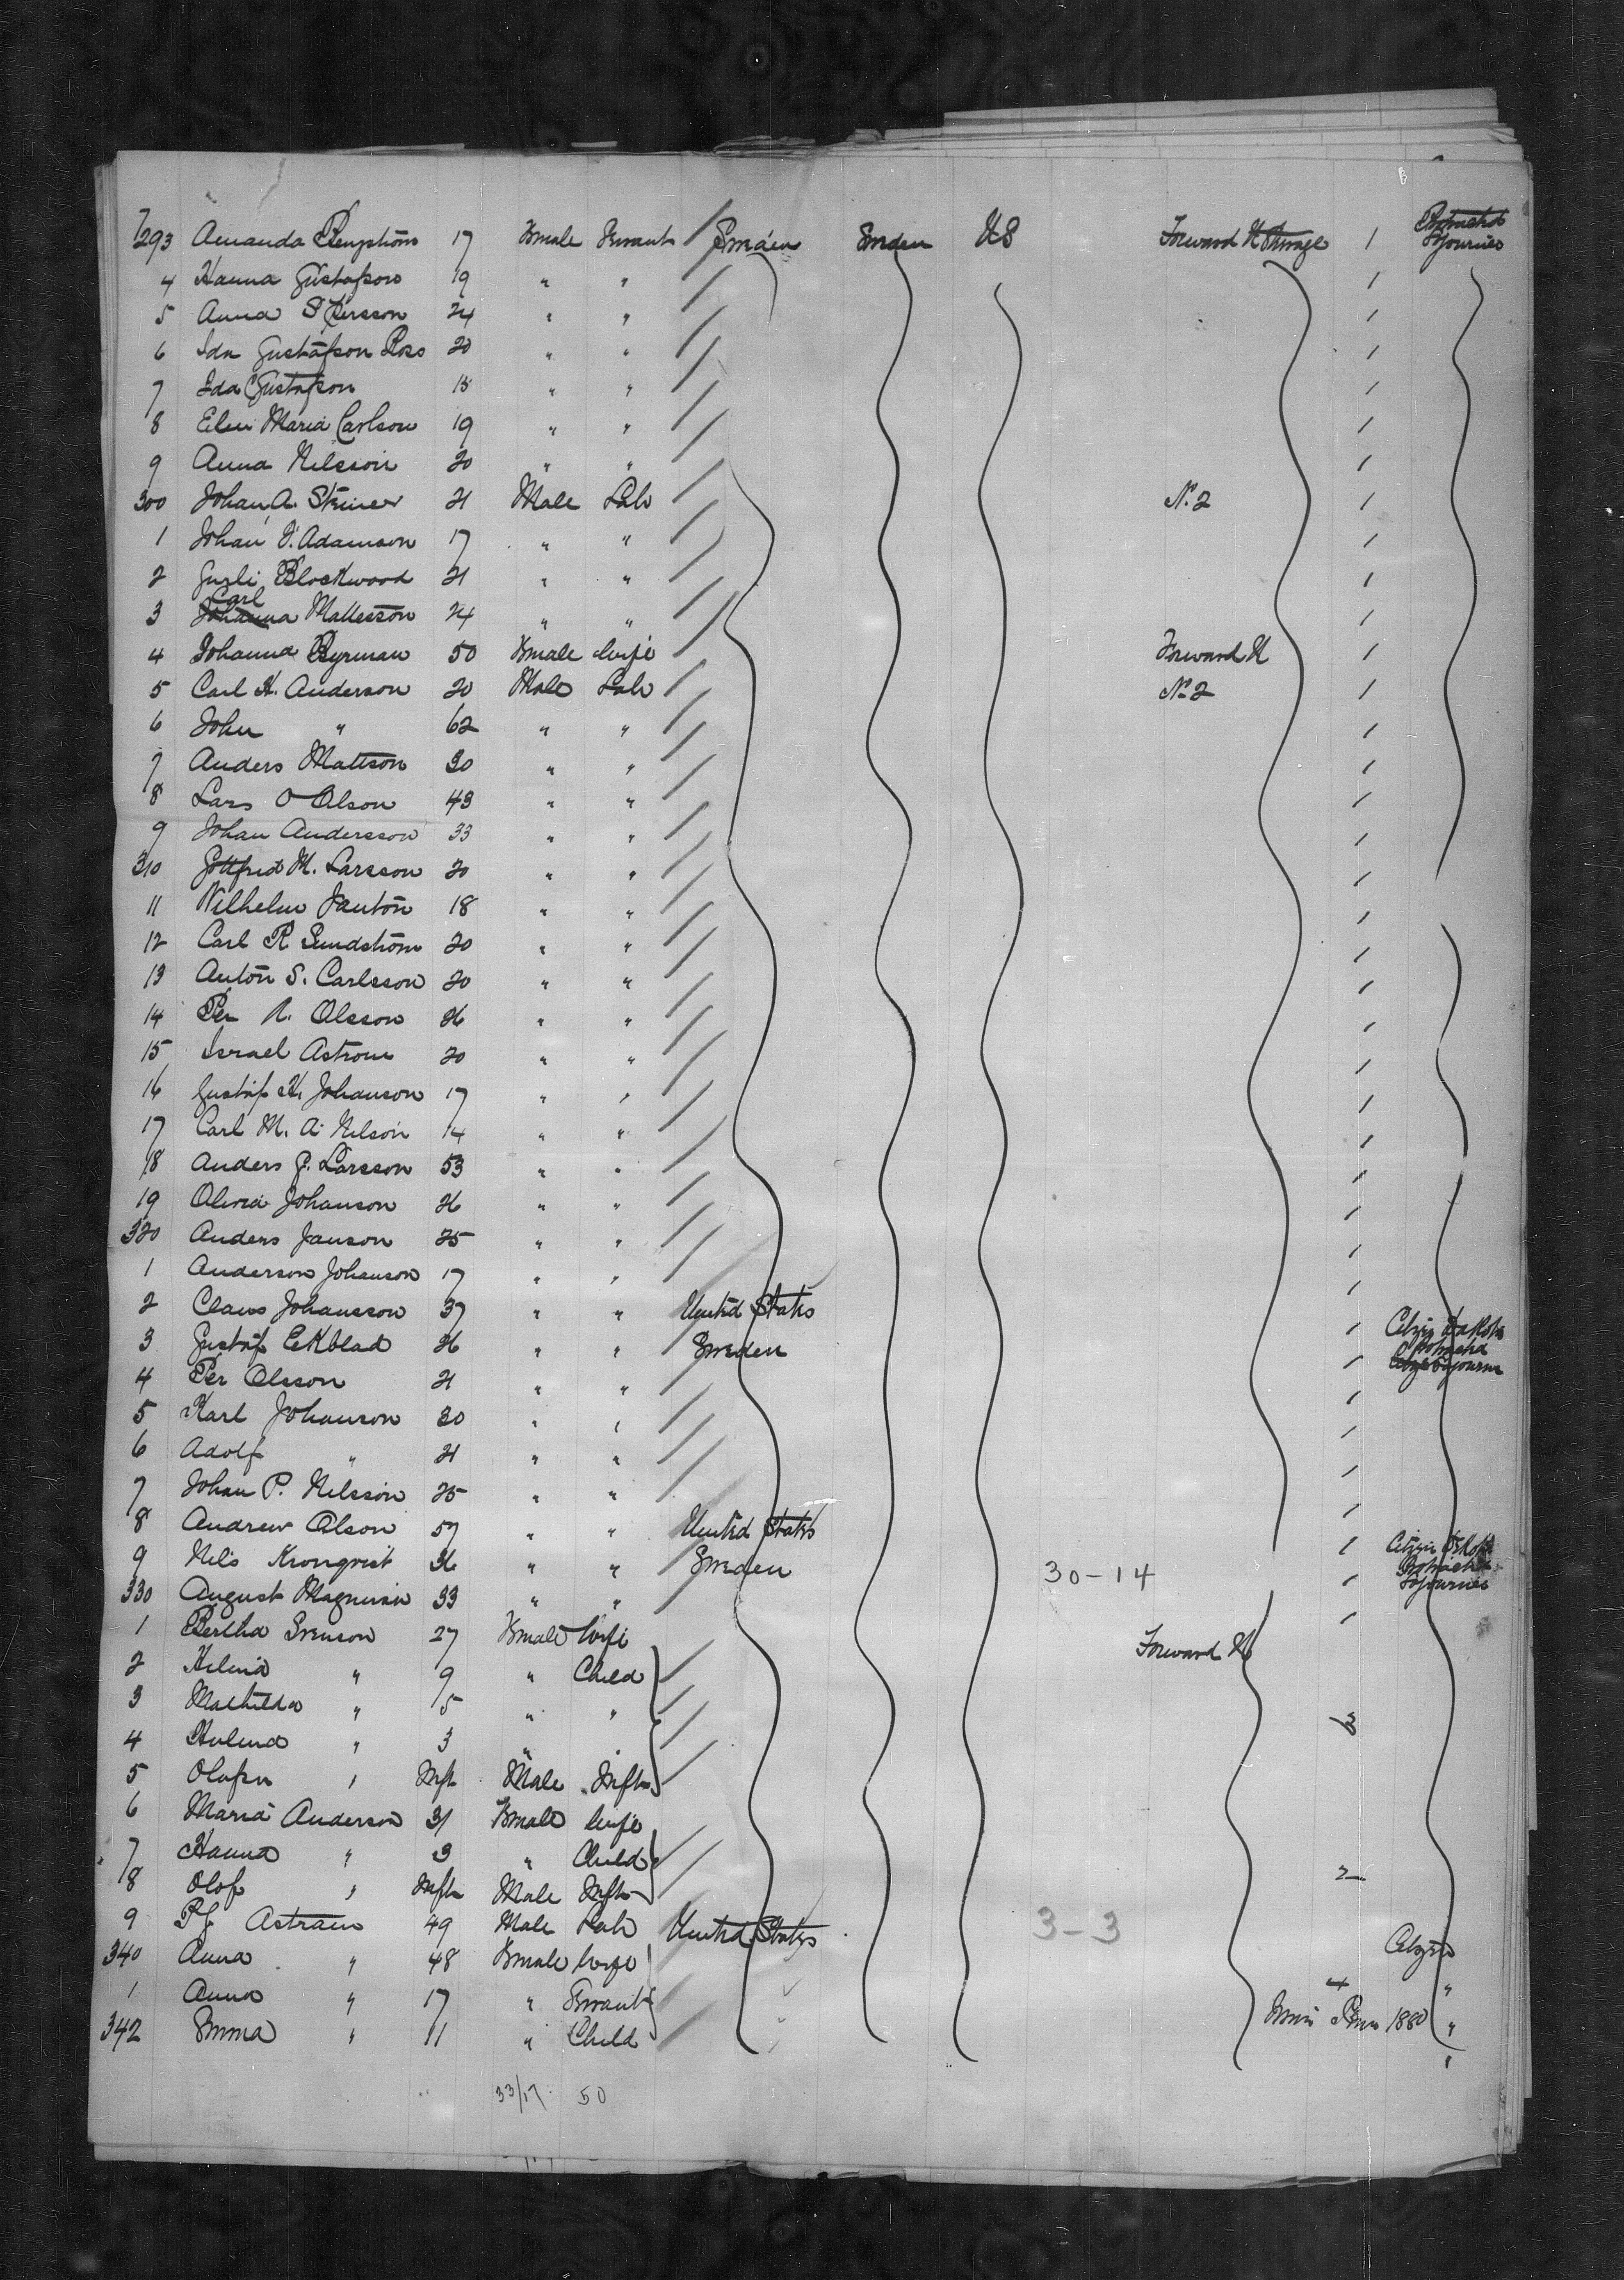 7293 Amanda Bengström 17 Female Servant / Sweden Sweden US Forward St Steerage 1 Protracted Sojourner
4 Hanna Gustafson 19 " " / 1
5 Anna S Persson 24 " " / 1
6 Ida Gustafson Ross 20 " " / 1
7 Ida Gustafson 18 " " / 1
8 Elin Maria Carlson 19 " " / 1
9 Anna Nilsson 20 " " / 1
300 Johan A. Steiner 21 Male Lab / No 2 1
1 Johan V. Adamson 17 " " / 1
2 Gusli Blockwood 21 " " / 1
3 Carl Johanna Mattesson 24 " " / 1
4 Johanna Byrman 50 Female Wife / Forward St 1
5 Carl H. Anderson 20 Male Lab / No 2 1
6 John " 62 " " / 1
7 Anders Mattson 30 " " / 1
8 Lars O Olson 43 " " / 1
9 Johan Andersson 33 " " / 1
310 Gottfried M. Larsson 20 " " / 1
11 Wilhelm Janton 18 " " / 1
12 Carl R Sundström 20 " " / 1
13 Anton S. Carlsson 20 " " / 1
14 Per N. Olsson 26 " " / 1
15 Israel Astrom 20 " " / 1
16 Gustaf H. Johanson 17 " " / 1
17 Carl M. A. Nilson 14 " " / 1
18 Anders J. Larsson 53 " " / 1
19 Olivia Johanson 26 " " / 1
320 Anders Janson 25 " " / 1
1 Anderson Johanson 17 " " / 1
2 Claus Johansson 37 " " United States 1 Citizen Dakota
3 Gustaf Eckblad 26 " " / Sweden 1 Protracted Sojourner
4 Per Olsson 21 " " / 1
5 Karl Johanson 30 " " / 1
6 Adolf " 21 " " / 1
7 Johan P. Nilsson 25 " " / 1
8 Andrew Olson 57 " " United States 1 Citizen
9 Nils Kronqvist 36 " " / Sweden 30-14 1 Protracted Sojourner
330 August Magnuson 33 " " / 1
1 Bertha Svenson 27 Female Wife Forward St
2 Hilma " 9 " Child /
3 Mathilda " 5 " " / 3
4 " 3 " " /
5 " Inft Male Inft /
6 Maria Anderson 31 Female Wife
7 Hanna " 3 " Child /
8 Olof " Inft Male Inft / 2
9 P J Astram 49 Male Lab United States 3-3 Citizen
340 Anna " 48 Female Wife 4 "
1 Anna " 17 " Servant 1880 "
342 Emma " 11 " Child "
33/17 50